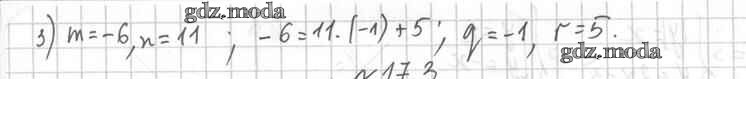 gdz.moda
3) m=-6, n=11 ; -6=11·(-1)+5; q=-1, r=5.
gdz.moda
№17.3